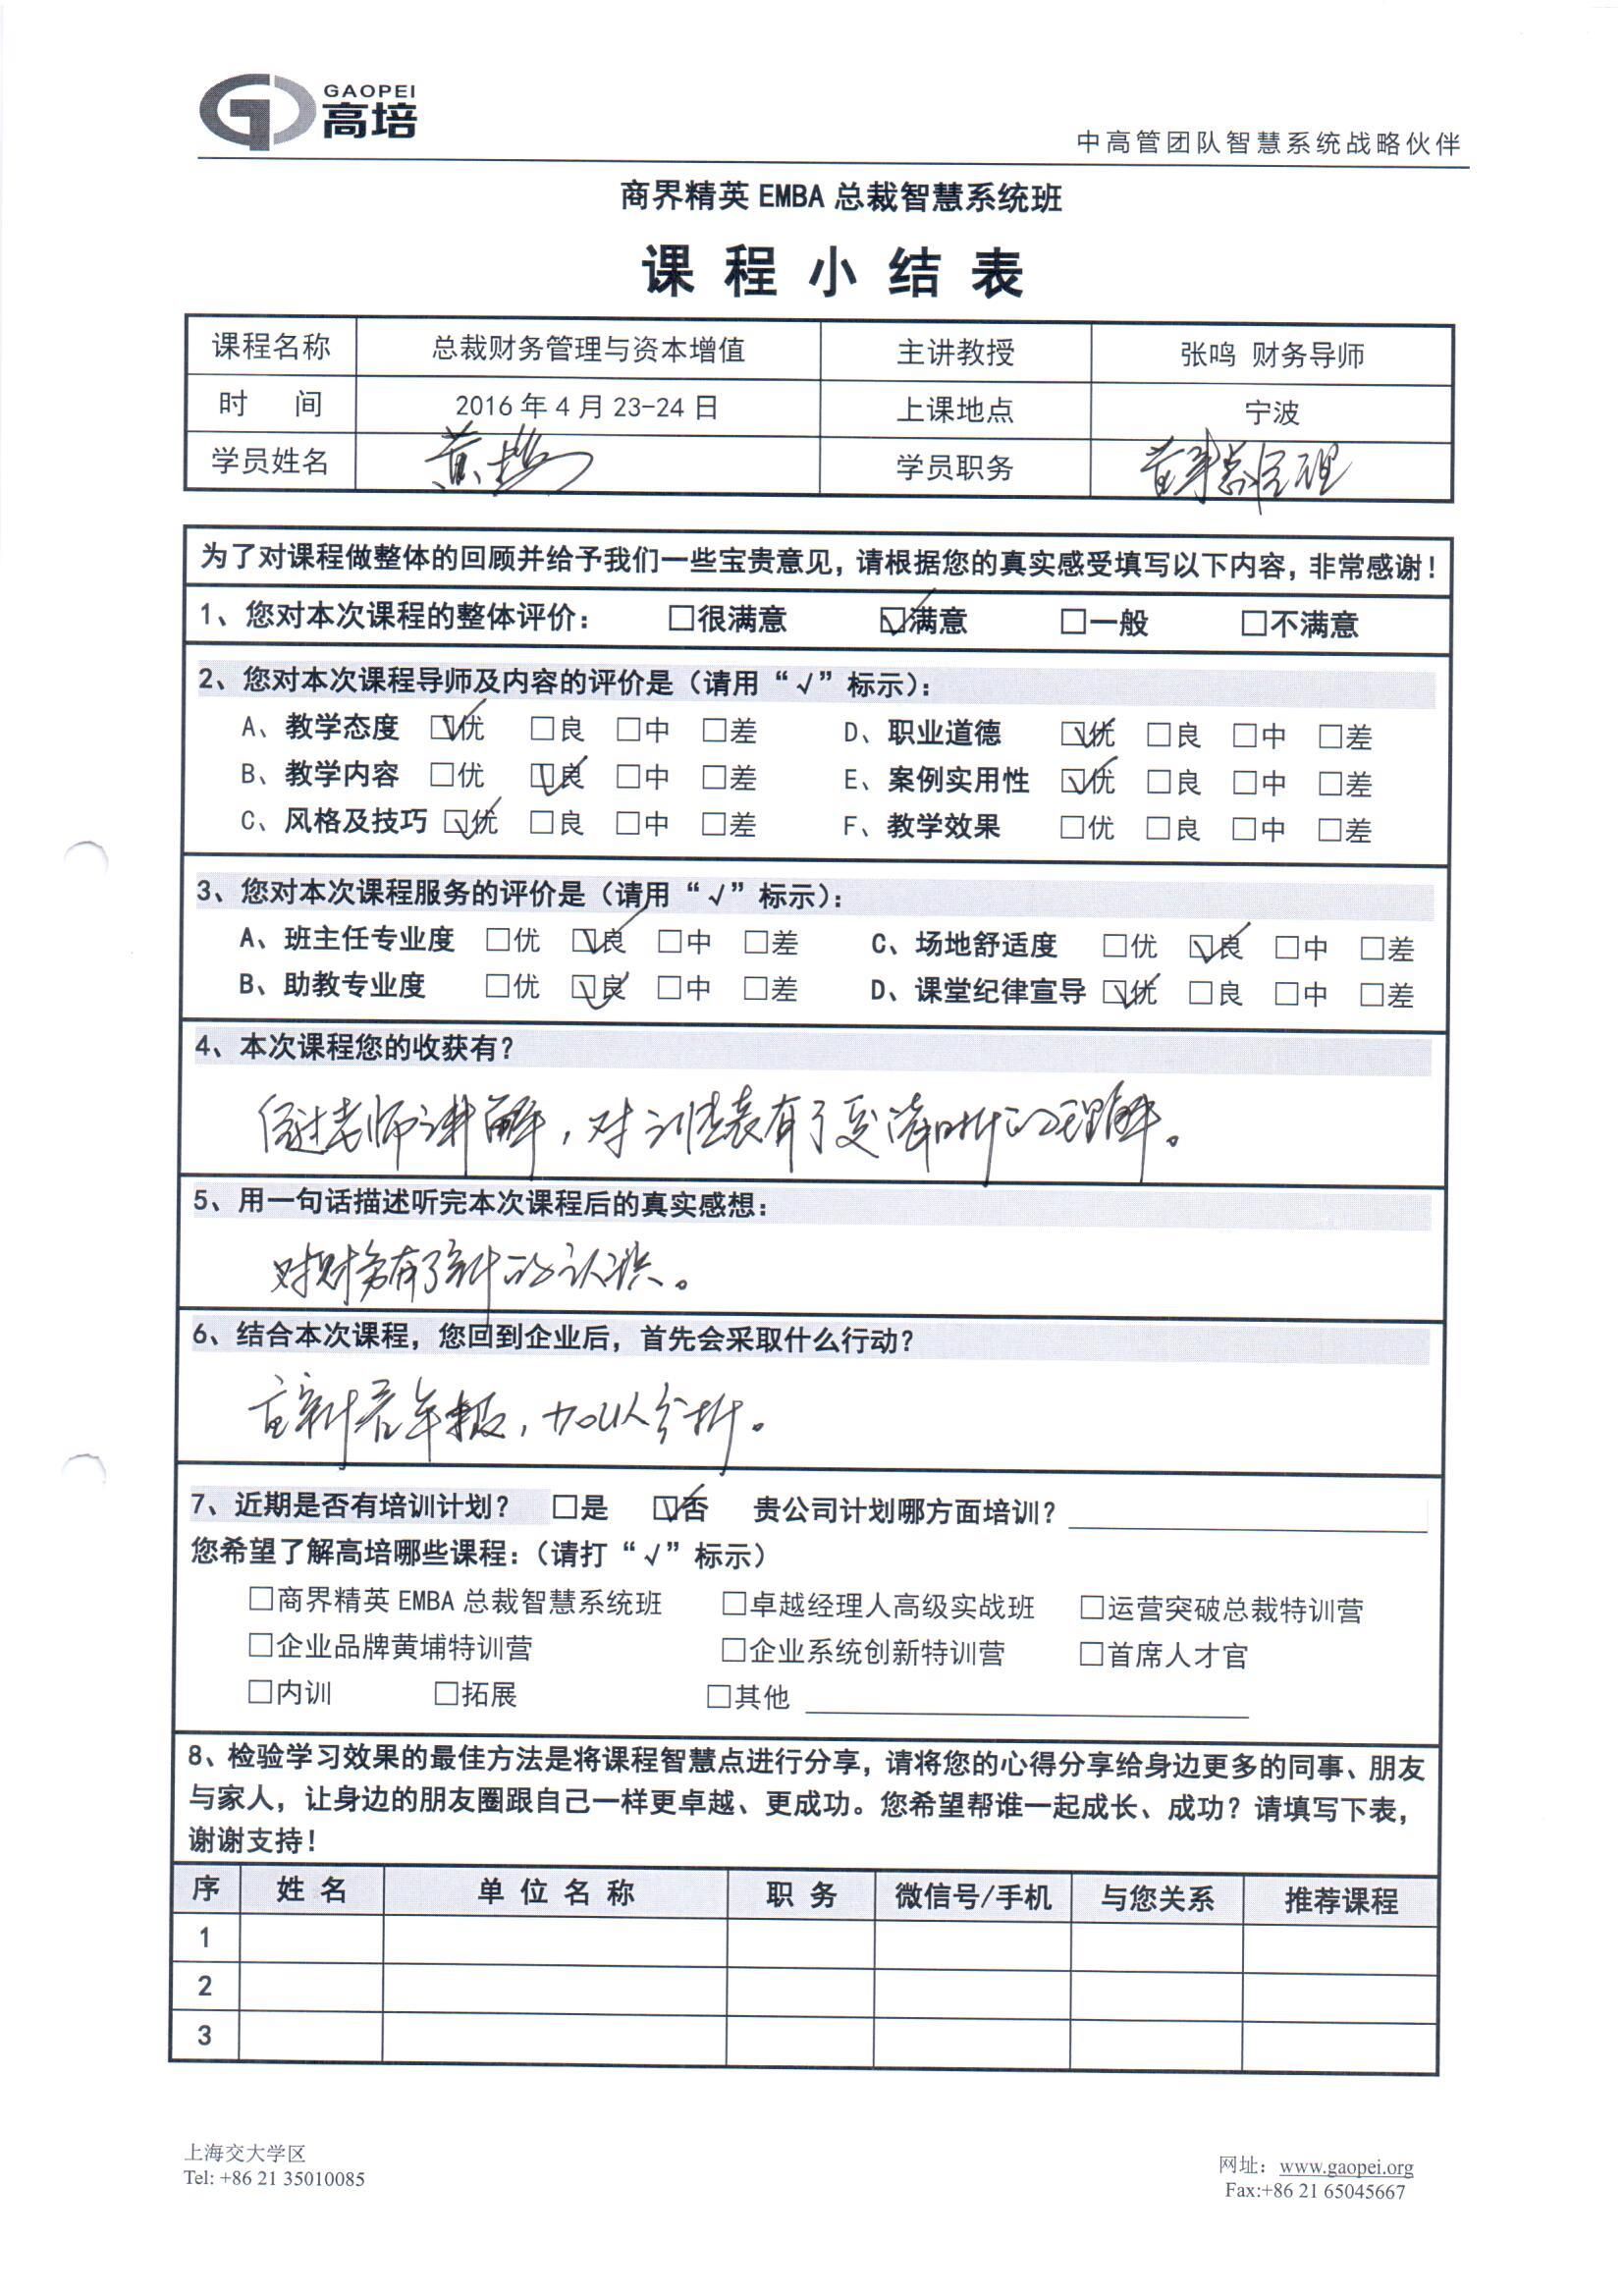 GAOPEI
高培
中高管团队智慧系统战略伙伴
商界精英 EMBA 总裁智慧系统班
课 程 小 结 表
课程名称 总裁财务管理与资本增值 主讲教授 张鸣 财务导师
时 间 2016 年 4 月 23-24 日 上课地点 宁波
学员姓名 黄 学员职务 总经理
为了对课程做整体的回顾并给予我们一些宝贵意见，请根据您的真实感受填写以下内容，非常感谢！
1、您对本次课程的整体评价： □很满意 ☑满意 □一般 □不满意
2、您对本次课程导师及内容的评价是（请用“√”标示）：
A、教学态度 ☑优 □良 □中 □差 D、职业道德 ☑优 □良 □中 □差
B、教学内容 □优 ☑良 □中 □差 E、案例实用性 ☑优 □良 □中 □差
C、风格及技巧 ☑优 □良 □中 □差 F、教学效果 □优 □良 □中 □差
3、您对本次课程服务的评价是（请用“√”标示）：
A、班主任专业度 □优 ☑良 □中 □差 C、场地舒适度 □优 ☑良 □中 □差
B、助教专业度 □优 ☑良 □中 □差 D、课堂纪律宣导 ☑优 □良 □中 □差
4、本次课程您的收获有？
经过老师讲解，对 表有了更清晰的理解。
5、用一句话描述听完本次课程后的真实感想：
对财务有了新的认识。
6、结合本次课程，您回到企业后，首先会采取什么行动？
重新看年报，加以分析。
7、近期是否有培训计划？ □是 ☑否 贵公司计划哪方面培训？
您希望了解高培哪些课程：（请打“√”标示）
□商界精英 EMBA 总裁智慧系统班 □卓越经理人高级实战班 □运营突破总裁特训营
□企业品牌黄埔特训营 □企业系统创新特训营 □首席人才官
□内训 □拓展 □其他
8、检验学习效果的最佳方法是将课程智慧点进行分享，请将您的心得分享给身边更多的同事、朋友
与家人，让身边的朋友圈跟自己一样更卓越、更成功。您希望帮谁一起成长、成功？请填写下表，
谢谢支持！
序 姓 名 单 位 名 称 职 务 微信号/手机 与您关系 推荐课程
1
2
3
上海交大学区
Tel: +86 21 35010085
网址：www.gaopei.org
Fax:+86 21 65045667